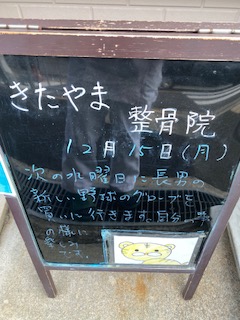 きたやま
整骨院
12月15日(月)
次の水曜日に長男の
新しい野球のグローブを
買いに行きます。自分
の様に
楽しみ
です。